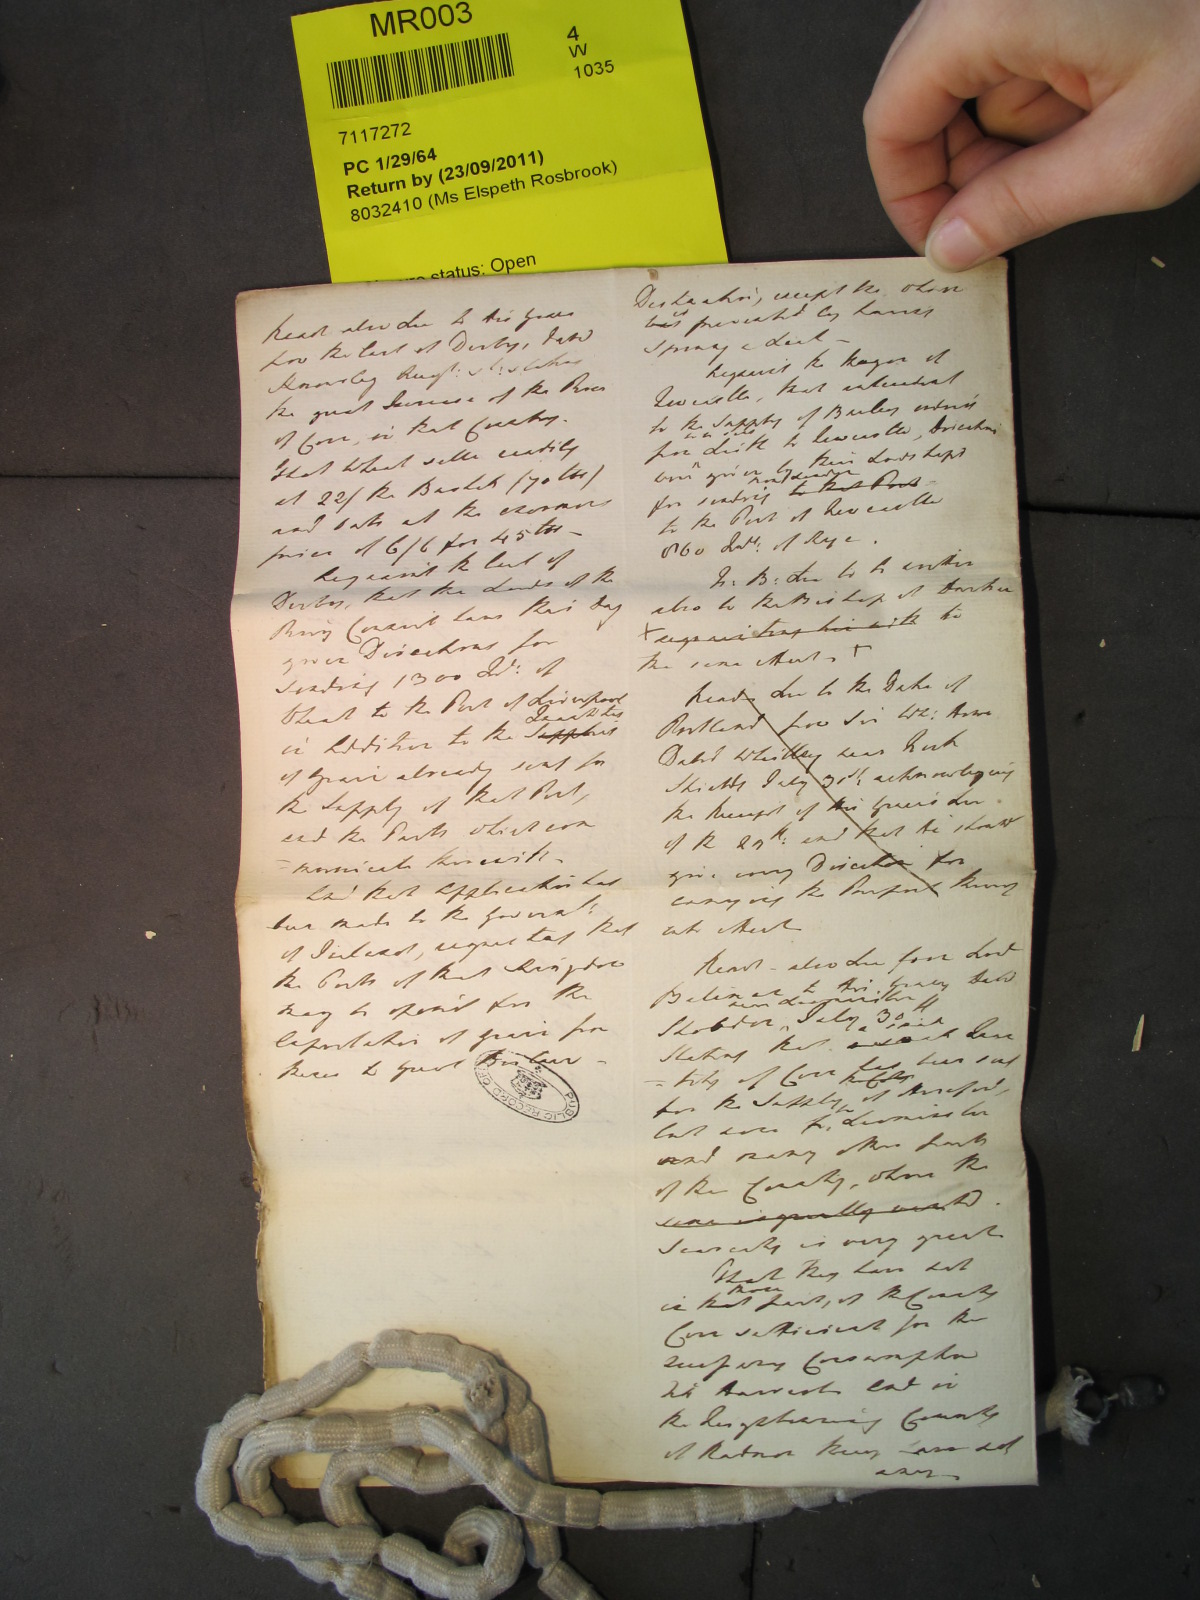 MR003
4
W
1035
7117272
PC 1/29/64
Return by (23/09/2011)
8032410 (Ms Elspeth Rosbrook)
status: Open
Read also Lre to His Grace
from the Earl of Derby, Dated
Knowsley Augt: 1st: stating
the great Increase of the Price
of Corn, in that Country.
That Wheat sells readily
at 22/ the Bushel (70 lbs)
and Oats at the enormous
price of 6/6 for 45 lbs -
Acquaint the Earl of
Derby, that the Lords of the
Privy Council have this Day
given Directions for
sending 1300 Qrs: of
Wheat to the Port of Liverpool
in Addition to the Supplies Quantities
of Grain already sent for
the Supply of that Port,
and the Parts which com
=municate therewith -
And that Application has
been made to the Governmt:
of Ireland, requesting that
the Ports of that Kingdom
may be opened for the
Exportation of Grain from
thence to Great Britain -
PUBLIC RECORD OFFICE
Destination, except the
was prevented by having
sprung a Leak -
Acquaint the Mayor of
Newcastle, that
to the Supply of Barley ordered
from Leith to Newcastle, Directions
were given by their Lordships
for sending to that Port
to the Port of Newcastle
860 Qrs: of Rye.
N: B: Lre to be written
also to the Bishop of Durham
to
the same effect -
Read Lre to the Duke of
Portland from Sir Wm: Howe
Dated Whitley near North
Shields July 31st: acknowledging
the Receipt of His Grace's Lre
of the 29th: and that He should
give every Direction for
carrying the Purport thereof
into effect
Read - also Lre from Lord
to His Grace, Dated
Shobdon, near Leominster July 30th
stating that a small Quan
=tity of Corn has been sent
for the Supply of Hereford,
but none for Leominster
and many other parts
of the County, where the
same is equally wanted.
Scarcity is very great
That they have not
in that part, of the County
Corn sufficient for the
necessary Consumption
till Harvest And in
the Neighbouring County
of Radnor they have not
any